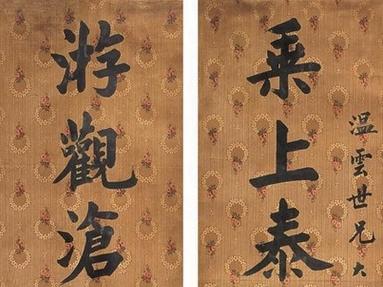 乘上泰
温雲世兄大
游觀滄